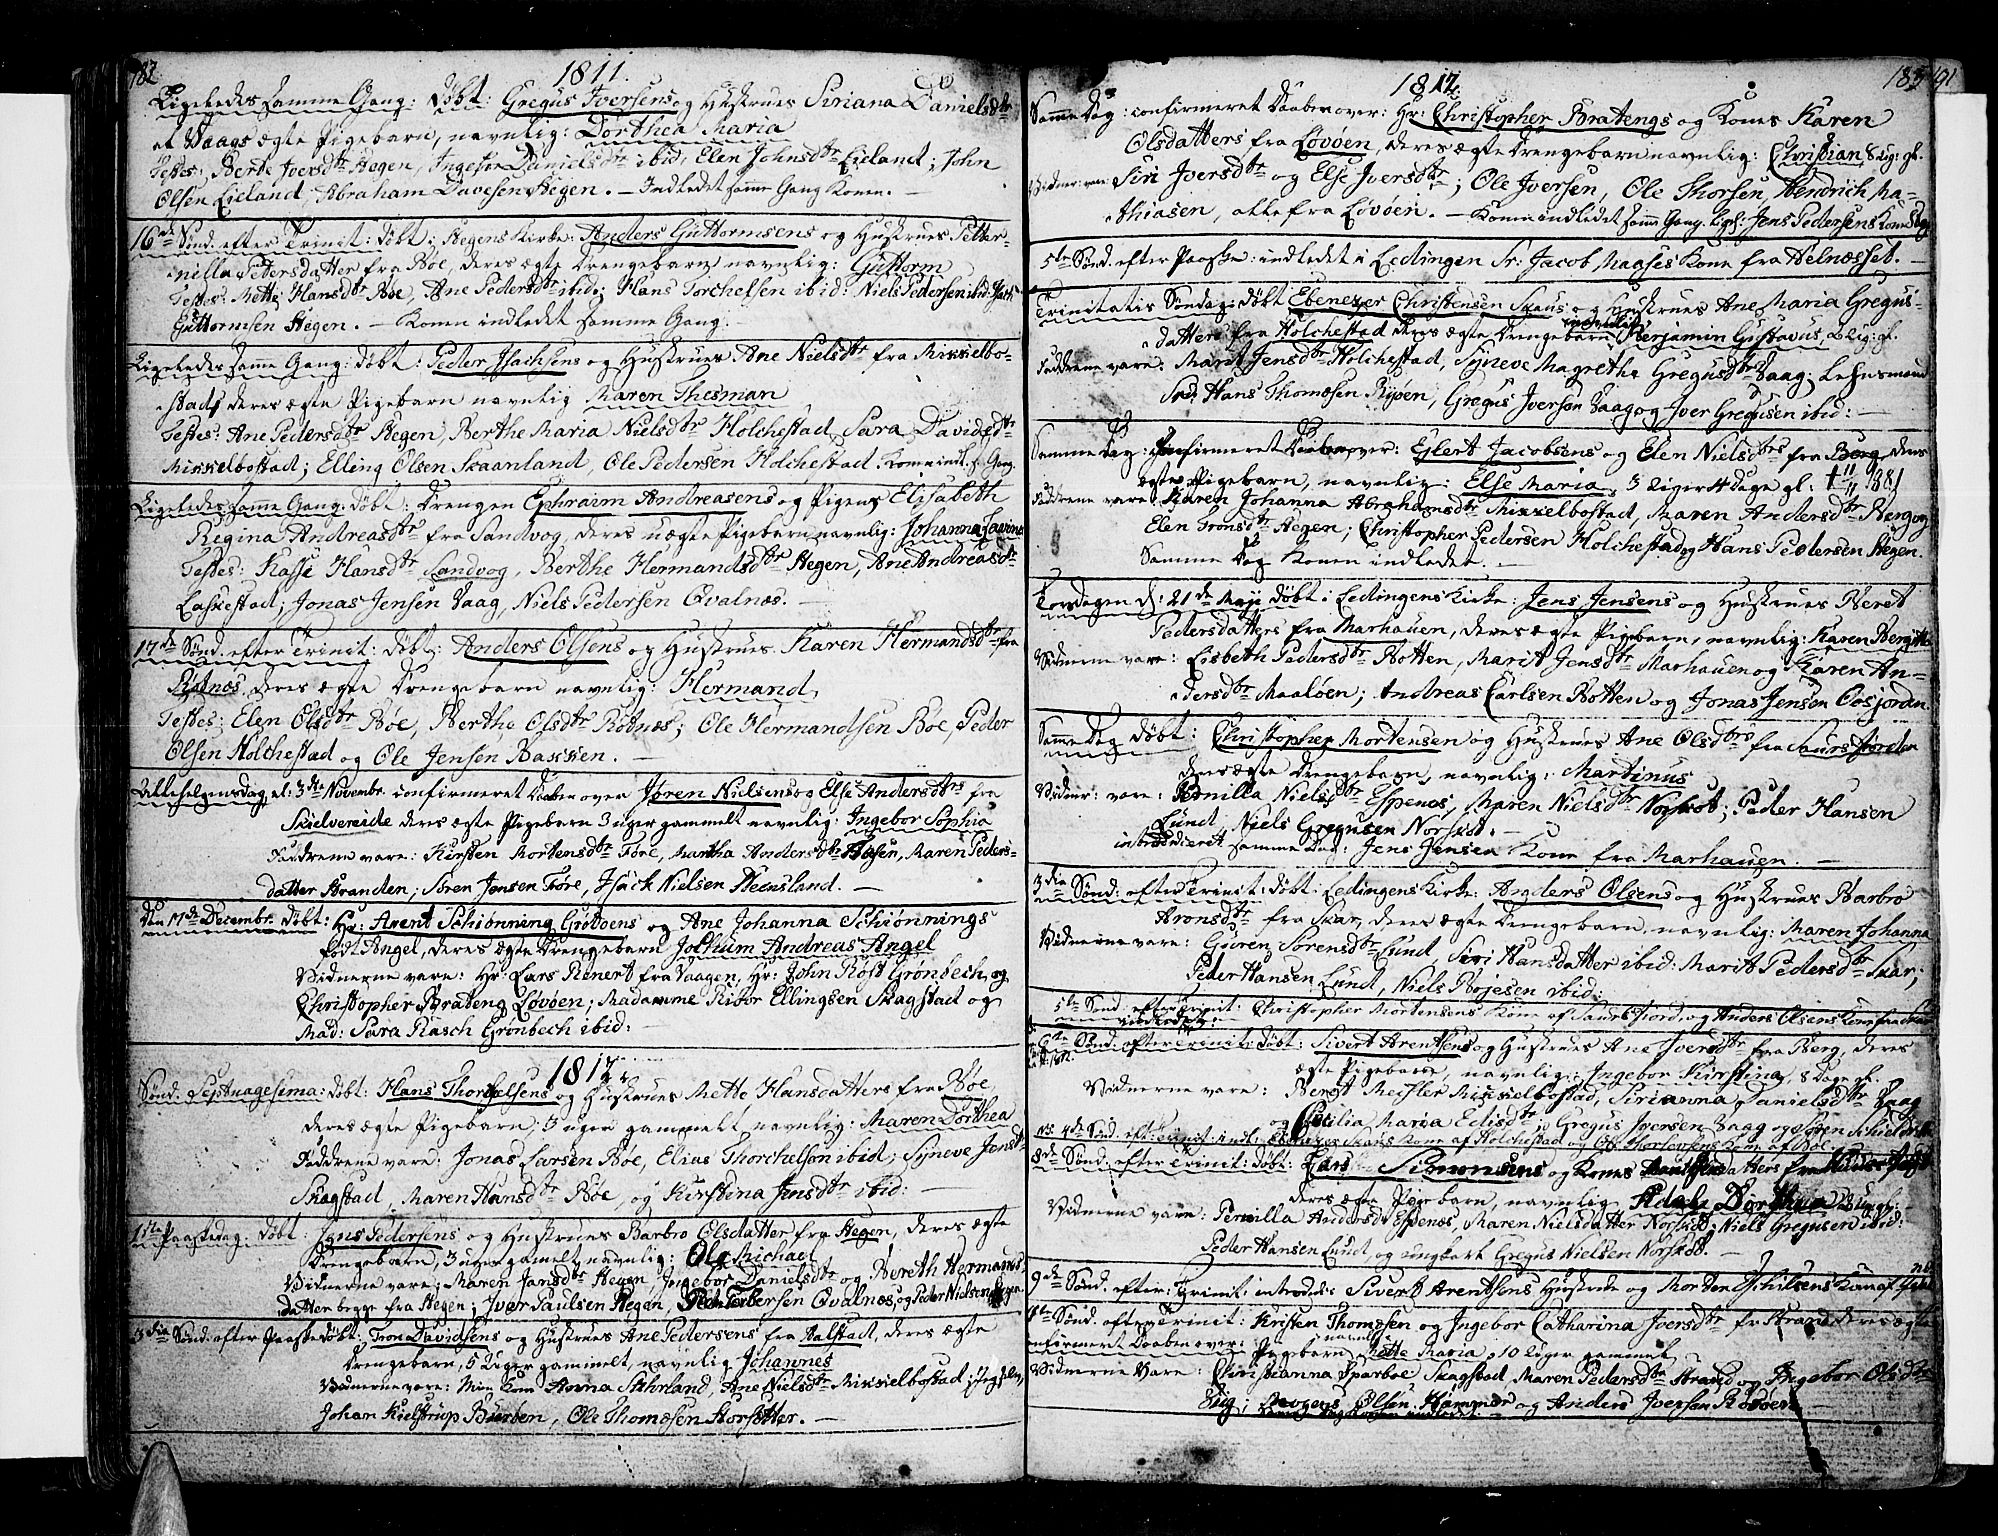 182
1811.
Ligeledes samme Gang: døbt: Gregus Iversens og Hustrues Siriana Danielsdtr
et Vaags ægte Pigebarn, navnlig: Dorthea Maria
Testes: Berte Iversdtr Hegen, Ingebor Danielsdtr ibid, Elen Johnsdtr Lieland; John
Olsen Lieland, Abraham Davesen Hegen. — Indledet samme Gang Konen. —
16de Sønd. efter Trinit: døbt i Hegens Kirke: Anders Guttormsens og Hustrues Petter-
nilla Petersdatter fra Bøe, deres ægte Drengebarn navnlig: Guttorm
Testes: Mette Hansdtr Bøe, Ane Pedersdtr ibid; Hans Torchelsen ibid: Niels Pedersen ibid
Guttormsen Hegen. — Konen indledet samme Gang.
Ligeledes samme Gang: døbt: Peder Isachsens og Hustrues Ane Nielsdtr fra Misselbo-
stad, deres ægte Pigebarn navnlig Maren Thesman
Testes: Ane Pedersdtr Hegen, Berthe Maria Nielsdtr Holchestad, Sara Davidsdtr
Misselbostad; Elling Olsen Skaanland, Ole Pedersen Holchestad. Konen indl. s. Gang.
Ligeledes samme Gang: døbt: Drengen Ephraim Andreasens og Pigens Elisabeth
Regina Andreasdtr fra Sandvog, deres uægte Pigebarn navnlig: Johanna
Testes: Hansdtr Sandvog, Berthe Hermandsdtr Hegen, Ane Andreasdtr
Laskestad; Jonas Jensen Vaag, Niels Pedersen Qvalnæs. —
17de Sønd. efter Trinit: døbt: Anders Olsens og Hustrues Karen Hermandsdtr fra
Rotnæs, deres ægte Drengebarn navnlig: Hermand,
Testes: Elen Olsdtr Bøe, Berthe Olsdtr Rotnæs; Ole Hermandsen Bøe, Peder
Olsen Holchestad og Ole Jensen Bakken. —
Allehelgensdag, et: 3die Novembr. confirmeret Daaben over Jøren Nielsens og Else Andersdtrs fra
Skielvereide deres ægte Pigebarn 3 uger gammelt navnlig: Ingebor Sophia
Faddrene vare: Kirsten Mortensdtr Føre, Martha Andersdtr Aasen, Maren Peders-
datter Stranden; Sören Jensen Føre, Isack Nielsen Steensland. —
Den 17de Decembr. døbt: Hr: Arent Schiønning Grøtøens og Ane Johanna Schiønnings
født Angel, deres ægte Drengebarn Jochum Andreas Angel
Vidnerne vare: Hr: Lars Rener fra Vaagen, Hr: John Røst Grønbech, og
Christopher Brateng Løvøen; Madamme Ellingsen Skagstad og
Mad: Sara Rasch Grönbech ibid: —
1812.
Sønd. Septuagesima: døbt: Hans Thorchelsens og Hustrues Mette Hansdatters fra Bøe,
deres ægte Pigebarn, 3 uger gammelt navnlig: Maren Dorthea
Faddrene vare: Jonas Larsen Bøe, Elias Thorchelsen ibid; Syneve Jensdtr
Skagstad, Maren Hansdtr Bøe, og Kirstina Jensdtr ibid: —
1ste Paaskedag: døbt: Jens Pedersens og Hustrues Barbro Olsdatter fra Hegen, deres ægte
Drengebarn, 3 uger gamelt navnlig: Ole Michael
Vidnerne vare: Maren Jensdtr Hegen, Ingebor Danielsdtr og Bereth Hermans-
datter begge fra Hegen; Iver Paulsen Hegen, Qvalnæs, og Peder Nielsen Hegen
3die Sønd. efter Paaske døbt: Tron Davidsens og Hustrues Ane Pedersens fra Halstad, deres ægte
Drengebarn, 5 Uger gammelt, navnlig Johannes
Vidnerne vare: Min Kone Anna Stenland, Ane Nielsdtr Misselbostad, Jeg selv,
Johan Kielstrup Burben, Ole Thomesen Storsetter. —
1812.
183 191
Samme Dag: confirmeret Daaben over: Hr: Christopher Bratengs og Kones Karen
Olsdatters fra Løvøen, deres ægte Drengebarn navnlig: Christian 8 Uger gl.
Vidner: vare Siri Iversdtr og Else Iversdtr; Ole Iversen, Ole Thorsen, Hendrich Ma-
thiasen, alle fra Løvøen. — Konen indledet samme Gang. Lig: Jens Pedersens Kone
5te Sønd. efter Paaske: indledet i Lødingen Sr: Jacob Maases Kone fra Helnæsset. —
Trinitatis Søndag: døbt Ebenezer Christensen Skaus og Hustrues Ane Maria Gregus-
datters fra Holchestad deres ægte Drengebarn navnlig Benjamin Gustavus, 2 Uger gl.
Faddrene vare: Marit Jensdtr Holchestad, Syneve Magrethe Gregusdtr Vaag; Lehnsmand
Sr: Hans Thomesen Rypøen, Gregus Iversen Vaag og Iver Gregusen ibid: —
Samme Dag: confirmeret Daaben over: Eylert Jacobsens og Elen Nielsdtrs fra Berg, deres
ægte Pigebarn, navnlig: Else Maria, 3 Uger 4 dage gl: † 1881
Faddrene vare: Karen Johanna Abrahamsdtr Misselbostad, Maren Andersdtr Berg og
Elen Tronsdtr Hegen; Christopher Pedersen Holchestad og Hans Pedersen Hegen.
Samme Dag Konen indledet. —
Torsdagen d: 21de Maji døbt i Lødingens Kirke: Jens Jensens og Hustrues Beret
Pedersdatters fra Marhauen, deres ægte Pigebarn, navnlig: Karen Bergitte
Vidnerne vare: Lisbeth Pedersdtr Botten, Marit Jensdtr Marhauen og Karen An-
dersdtr Maaløen; Andreas Carlsen Botten og Jonas Jensen
Samme Dag døbt: Christopher Mortensen og Hustrues Ane Olsdtrs fra Saursfiorden
deres ægte Drengebarn, navnlig: Martinus
Vidner: vare: Pernilla Nielsdtr Espenes, Maren Nielsdtr Norskot; Peder Hansen
Lund, Niels Gregusen Norskot. —
introduceret samme Dag: Jens Jensen Kone fra Marhauen. —
3die Sønd: efter Trinit: døbt: Lødingens Kirke: Anders Olsens og Hustrues Barbro
Aronsdtr fra Skar, deres ægte Drengebarn navnlig: Maren Johanna
Vidnerne vare: Guren Sorensdtr Lund, Siri Hansdatter ibid: Marit Pedersdtr Skar;
Peder Hansen Lund, Niels Bojesen ibid:
5te Sønd. efter Trinit: Christopher Mortensens Kone af Saursfiord, og Anders Olsens Kone fra Skar
6te Sønd: efter Trinit: døbt: Sivert Arentsens og Hustrues Ane Iversdtr fra Berg, deres
ægte Pigebarn, navnlig: Ingebor Kirstina, 8 Dage gl.
Vidnerne vare: Beret Misselbostad, Sirianna Danielsdtr Vaag
og Cecilia Maria Edisdtr; Gregus Iversen Vaag og Søren
4de Sønd. eft: Trinit: indl: Skaus Kone af Holchestad og Kone af Bøe
8de Sønd: efter Trinit: døbt: Lars Simonsens og Kones
deres ægte Pigebarn, navnlig Adals Dorthea
Vidnerne vare: Pernilla Andersdtr Espenes, Maren Nielsdatter Norskot; Niels Gregusen ibid:
Peder Hansen Lund, og ungkarl Gregus Nielsen Norskot. —
9de Sønd: efter Trinit introd: Sivert Arentsens Hustrue og Morten Kone af
efter Trinit: Kristen Thomesen og Ingebor Catharina Iversdtr fr Strand deres ægte
confirmert Daaben over: Pigebarn navnl: Mette Maria, 10 Uger gammel
Vidnerne vare: Christianna Sparboe Skagstad, Maren Pedersdtr Strand og Ingebor Olsdtr
Olsen Hammer og Anders Iversen